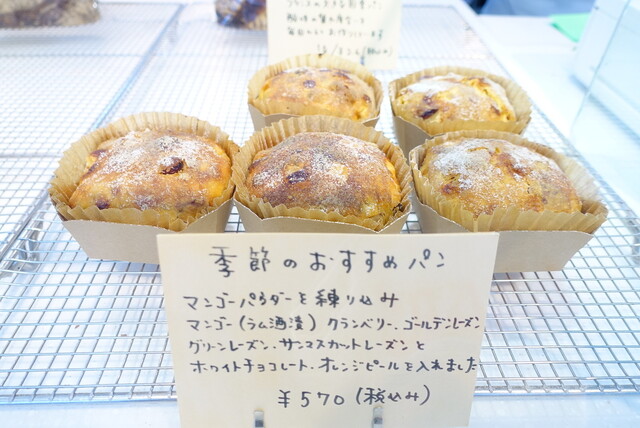 毎日のらくお作りします
季節のおすすめパン
マンゴーパウダーを練り込み
マンゴー(ラム酒漬) クランベリー、ゴールデンレーズン
グリーンレーズン、サンマスカットレーズンと
ホワイトチョコレート、オレンジピールを入れました
¥570(税込み)